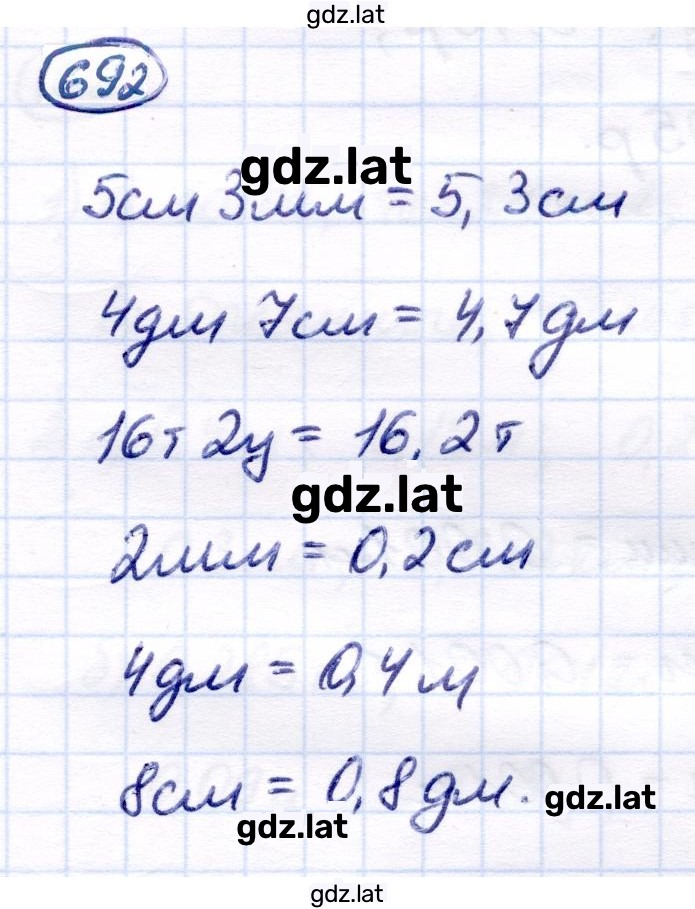 gdz.lat
692
gdz.lat
5см 3мм = 5,3см
4дм 7см = 4,7дм
16т 2ц = 16,2т
gdz.lat
2мм = 0,2см
4дм = 0,4м
8см = 0,8дм.
gdz.lat
gdz.lat
gdz.lat